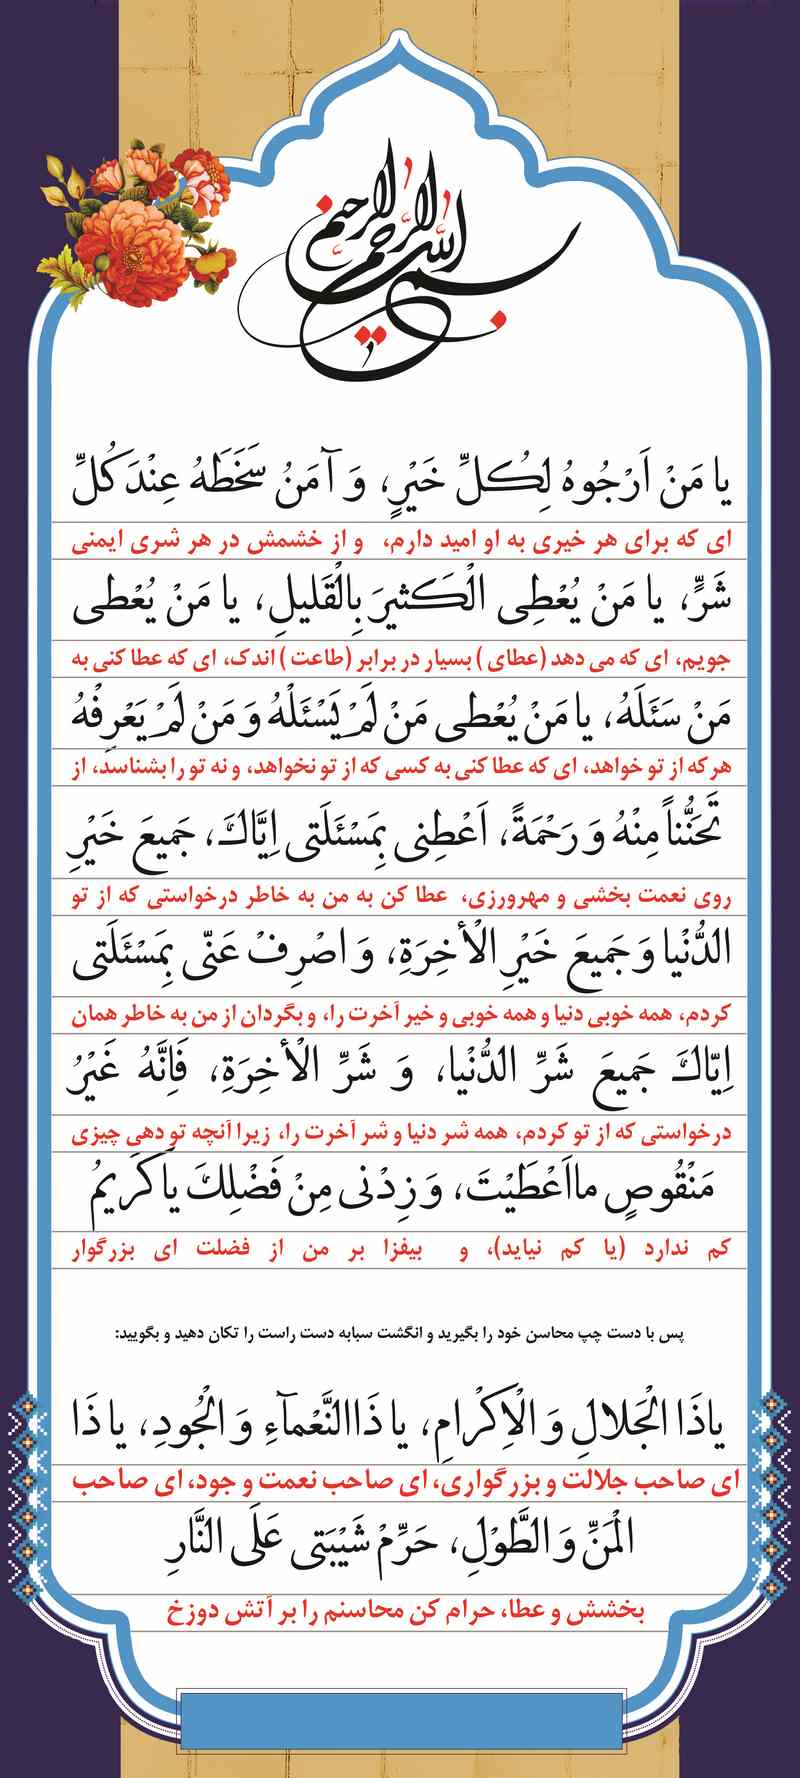 بسم الله الرحمن الرحیم
یا مَنْ اَرْجُوهُ لِکُلِّ خَیْرٍ، وَ آمَنُ سَخَطَهُ عِنْدَ کُلِّ
ای که برای هر خیری به او امید دارم، و از خشمش در هر شری ایمنی
شَرٍّ، یا مَنْ یُعْطِی الْکَثیرَ بِالْقَلیلِ، یا مَنْ یُعْطی
جویم، ای که می دهد (عطای) بسیار در برابر (طاعت) اندک، ای که عطا کنی به
مَنْ سَئَلَهُ، یا مَنْ یُعْطی مَنْ لَمْ یَسْئَلْهُ وَ مَنْ لَمْ یَعْرِفْهُ
هرکه از تو خواهد، ای که عطا کنی به کسی که از تو نخواهد، و نه تو را بشناسد، از
تَحَنُّناً مِنْهُ وَ رَحْمَةً، اَعْطِنی بِمَسْئَلَتی اِیَّاکَ، جَمیعَ خَیْرِ
روی نعمت بخشی و مهرورزی، عطا کن به من به خاطر درخواستی که از تو
الدُّنْیا وَ جَمیعَ خَیْرِ الْأخِرَةِ، وَ اصْرِفْ عَنّی بِمَسْئَلَتی
کردم، همه خوبی دنیا و همه خوبی و خیر آخرت را، و بگردان از من به خاطر همان
اِیّاکَ جَمیعَ شَرِّ الدُّنْیا، وَ شَرِّ الْأخِرَةِ، فَاِنَّهُ غَیْرُ
درخواستی که از تو کردم، همه شر دنیا و شر آخرت را، زیرا آنچه تو دهی چیزی
مَنْقُوصٍ ما اَعْطَیْتَ، وَ زِدْنی مِنْ فَضْلِکَ یا کَریمُ
کم ندارد (یا کم نیاید)، و بیفزا بر من از فضلت ای بزرگوار
پس با دست چپ محاسن خود را بگیرید و انگشت سبابه دست راست را تکان دهید و بگویید:
یا ذَا الْجَلالِ وَ الْاِکْرامِ، یا ذَا النَّعْمآءِ وَ الْجُودِ، یا ذَا
ای صاحب جلالت و بزرگواری، ای صاحب نعمت و جود، ای صاحب
الْمَنِّ وَ الطَّوْلِ، حَرِّمْ شَیْبَتی عَلَی النَّارِ
بخشش و عطا، حرام کن محاسنم را بر آتش دوزخ